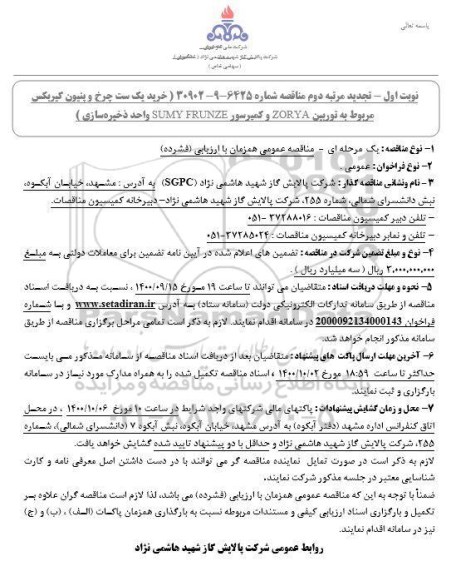 باسمه تعالی
شرکت ملی گاز ایران
شرکت پالایش گاز شهید هاشمی نژاد (خانگیران)
(سهامی خاص)
نوبت اول – تجدید مرتبه دوم مناقصه شماره ۶۴۲۵-۹-۳۰۹۰۲ ( خرید یک ست چرخ و پنیون گیربکس
مربوط به توربین ZORYA و کمپرسور SUMY FRUNZE واحد ذخیره‌سازی )
۱- نوع مناقصه: یک مرحله ای – مناقصه عمومی همزمان با ارزیابی (فشرده)
۲- نوع فراخوان: عمومی.
۳- نام ونشانی مناقصه گذار: شرکت پالایش گاز شهید هاشمی نژاد (SGPC) به آدرس : مشهد، خیابان آبکوه،
نبش دانشسرای شمالی، شماره ۲۵۵، شرکت پالایش گاز شهید هاشمی نژاد- دبیرخانه کمیسیون مناقصات.
- تلفن دبیر کمیسیون مناقصات : ۳۷۲۸۸۰۱۶-۰۵۱
- تلفن و نمابر دبیرخانه کمیسیون مناقصات : ۳۷۲۸۵۰۲۴-۰۵۱
۴- نوع و مبلغ تضمین شرکت در مناقصه : تضمین های اعلام شده در آیین نامه تضمین برای معاملات دولتی به مبلغ
۳,۰۰۰,۰۰۰,۰۰۰ ریال ( سه میلیارد ریال ) .
۵- نحوه و مهلت دریافت اسناد : متقاضیان می توانند تا ساعت ۱۹ مورخ ۱۴۰۰/۰۹/۱۵ ، نسبت به دریافت اسناد
مناقصه از طریق سامانه تدارکات الکترونیکی دولت (سامانه ستاد) به آدرس www.setadiran.ir و با شماره
فراخوان 2000092134000143 در سامانه اقدام نمایند. لازم به ذکر است تمامی مراحل برگزاری مناقصه از طریق
سامانه مذکور انجام خواهد شد.
۶- آخرین مهلت ارسال پاکت های پیشنهاد : متقاضیان بعد از دریافت اسناد مناقصه از سامانه مذکور می بایست
حداکثر تا ساعت ۱۸:۵۹ مورخ ۱۴۰۰/۱۰/۰۲ ، اسناد مناقصه تکمیل شده را به همراه مدارک مورد نیاز در سامانه
بارگزاری و ثبت نمایند.
۷- محل و زمان گشایش پیشنهادات : پاکتهای مالی شرکتهای واجد شرایط در ساعت ۱۰ مورخ ۱۴۰۰/۱۰/۰۶ ، در محل
اتاق کنفرانس اداره مشهد (دفتر آبکوه) به آدرس مشهد، خیابان آبکوه، نبش آبکوه ۷ (دانشسرای شمالی)، شماره
۲۵۵، شرکت پالایش گاز شهید هاشمی نژاد و حداقل با دو پیشنهاد تایید شده گشایش خواهد یافت.
لازم به ذکر است در صورت تمایل نماینده مناقصه گر می توانند با در دست داشتن اصل معرفی نامه و کارت
شناسایی معتبر در جلسه مذکور شرکت نمایند.
ضمناً با توجه به این که مناقصه عمومی همزمان با ارزیابی (فشرده) می باشد، لذا لازم است مناقصه گران علاوه بر
تکمیل و بارگزاری اسناد ارزیابی کیفی و مستندات مربوطه نسبت به بارگذاری همزمان پاکات (الف) ، (ب) و (ج)
نیز در سامانه اقدام نمایند.
روابط عمومی شرکت پالایش گاز شهید هاشمی نژاد